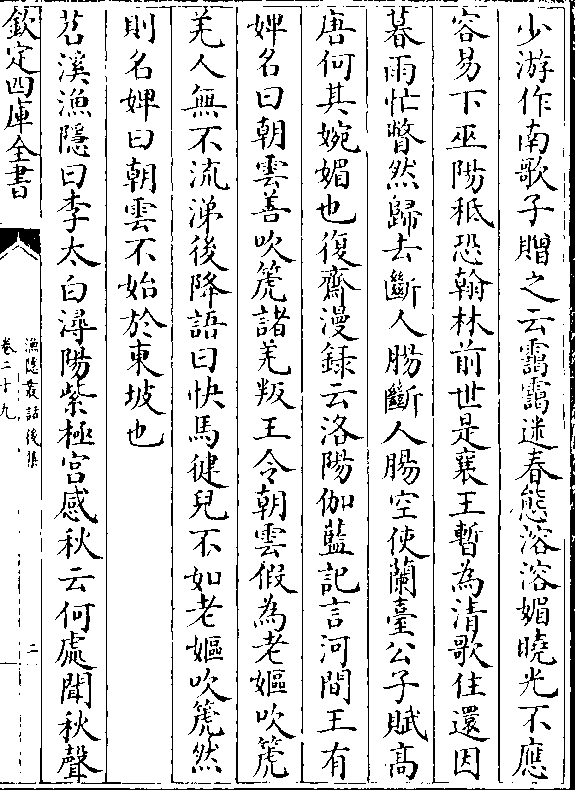 少游作南歌子贈之云靄靄迷春態溶溶媚曉光不應
容易下巫陽秪恐翰林前世是襄王暫為清歌住還因
暮雨忙瞥然歸去斷人腸斷人腸空使蘭臺公子賦髙
唐何其婉媚也復齋漫録云洛陽伽藍記言河間王有
婢名曰朝雲善吹箎諸羌叛王令朝雲假為老嫗吹箎
羌人無不流涕後降語曰快馬健兒不如老嫗吹箎然
則名婢曰朝雲不始於東坡也
苕溪漁隱曰李太白潯陽紫極宫感秋云何處聞秋聲
欽定四庫全書
漁隱叢話後集
卷二十九
二